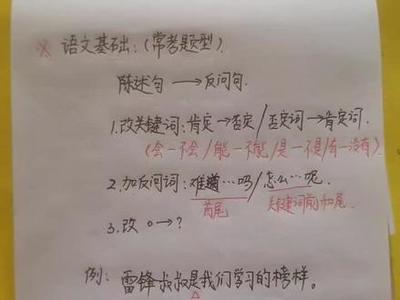 ※ 语文基础：(常考题型)
陈述句 → 反问句.
1.改关键词：肯定→否定/否定词→肯定词.
(会-不会/能-不能/是-不是/有-没有)
2.加反问词：难道…吗/怎么…呢.
首尾 关键词前和尾.
3.改 。→？
例：雷锋叔叔是我们学习的榜样。